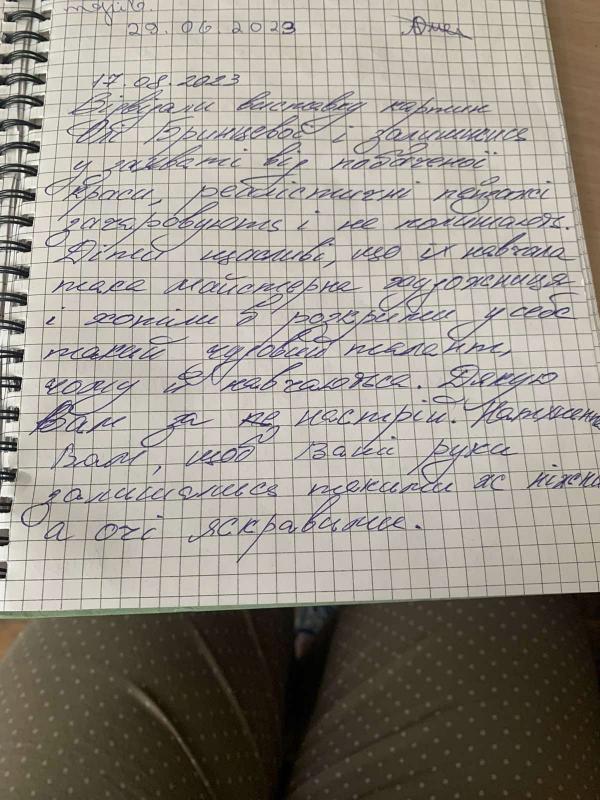 29.06.2023
17.08.2023
Відвідали виставку картин
Бринцевої і залишились
у захваті від побаченої
краси, реалістичні пейзажі
зачаровують і не полишають.
Діти щасливі, що їх навчала
така майстерна художниця
і хотіли б розкрити у себе
такий чудовий талант,
чому й навчаються. Дякую
Вам за настрій. Натхнення
Вам, щоб Ваші руки
залишались такими ж ніжни
а очі яскравими.